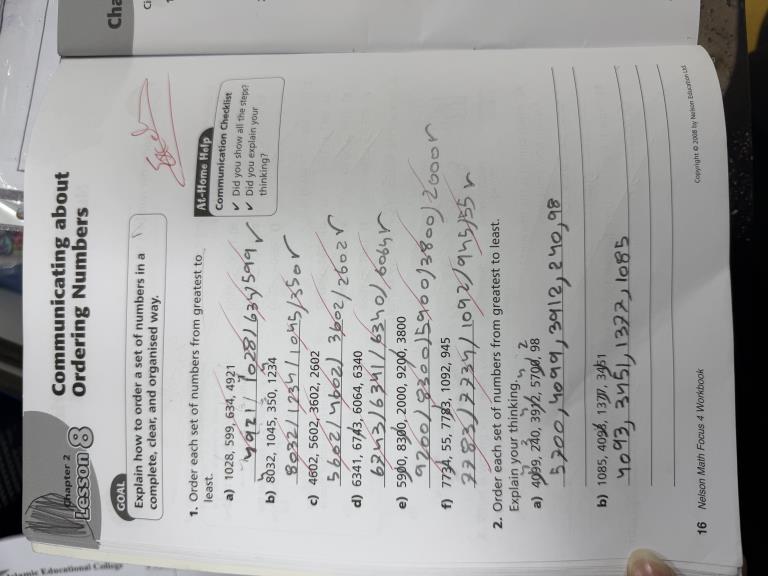 Chapter 2
Lesson 8
Communicating about
Ordering Numbers
GOAL
Explain how to order a set of numbers in a
complete, clear, and organised way.
At-Home Help
Communication Checklist
✔ Did you show all the steps?
✔ Did you explain your
thinking?
1. Order each set of numbers from greatest to
least.
a) 1028, 599, 634, 4921
4921/1028/634/599
b) 8032, 1045, 350, 1234
8032/1234/1045/350
c) 4602, 5602, 3602, 2602
5602/4602/3602/2602
d) 6341, 6743, 6064, 6340
6743/6341/6340/6064
e) 5900, 8300, 2000, 9200, 3800
9200/8300/5900/3800/2000
f) 7734, 55, 7783, 1092, 945
7783/7734/1092/945/55
2. Order each set of numbers from greatest to least.
Explain your thinking.
a) 4099, 240, 3912, 5700, 98
5700, 4099, 3912, 240, 98
b) 1085, 4093, 1377, 3451
4093, 3451, 1377, 1085
16 Nelson Math Focus 4 Workbook
Copyright © 2008 by Nelson Education Ltd.
Islamic Educational College
Cha